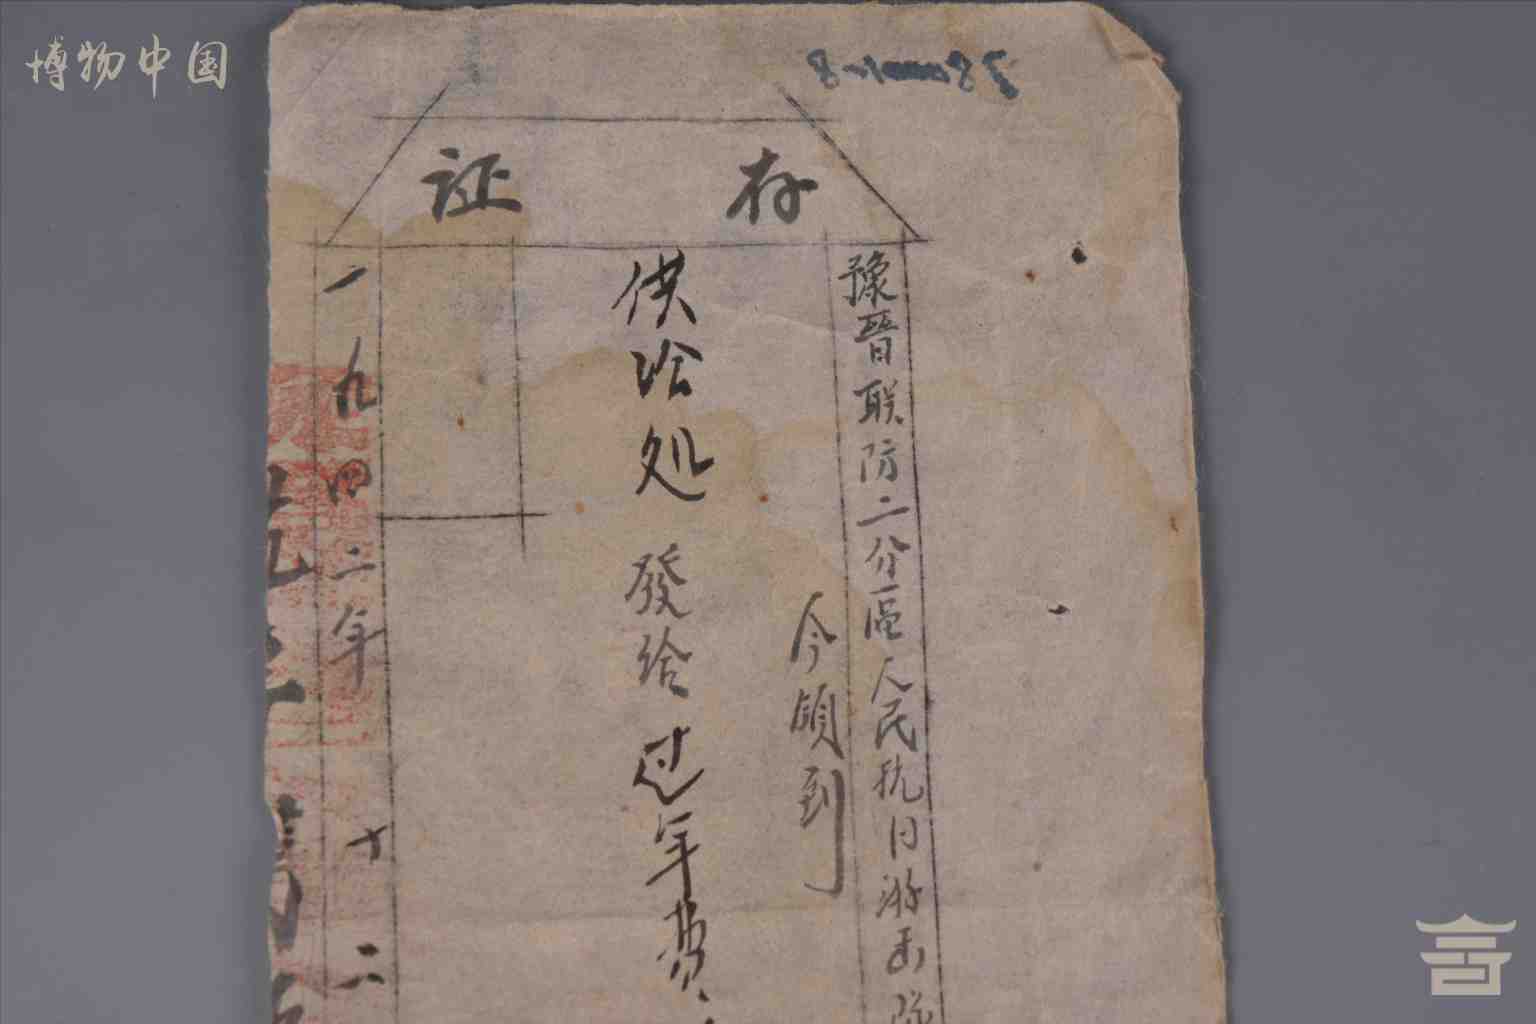 博物中国
存证
豫晉联防二分區人民抗日游击隊
今領到
供给处發给过年费
一九四二年十二